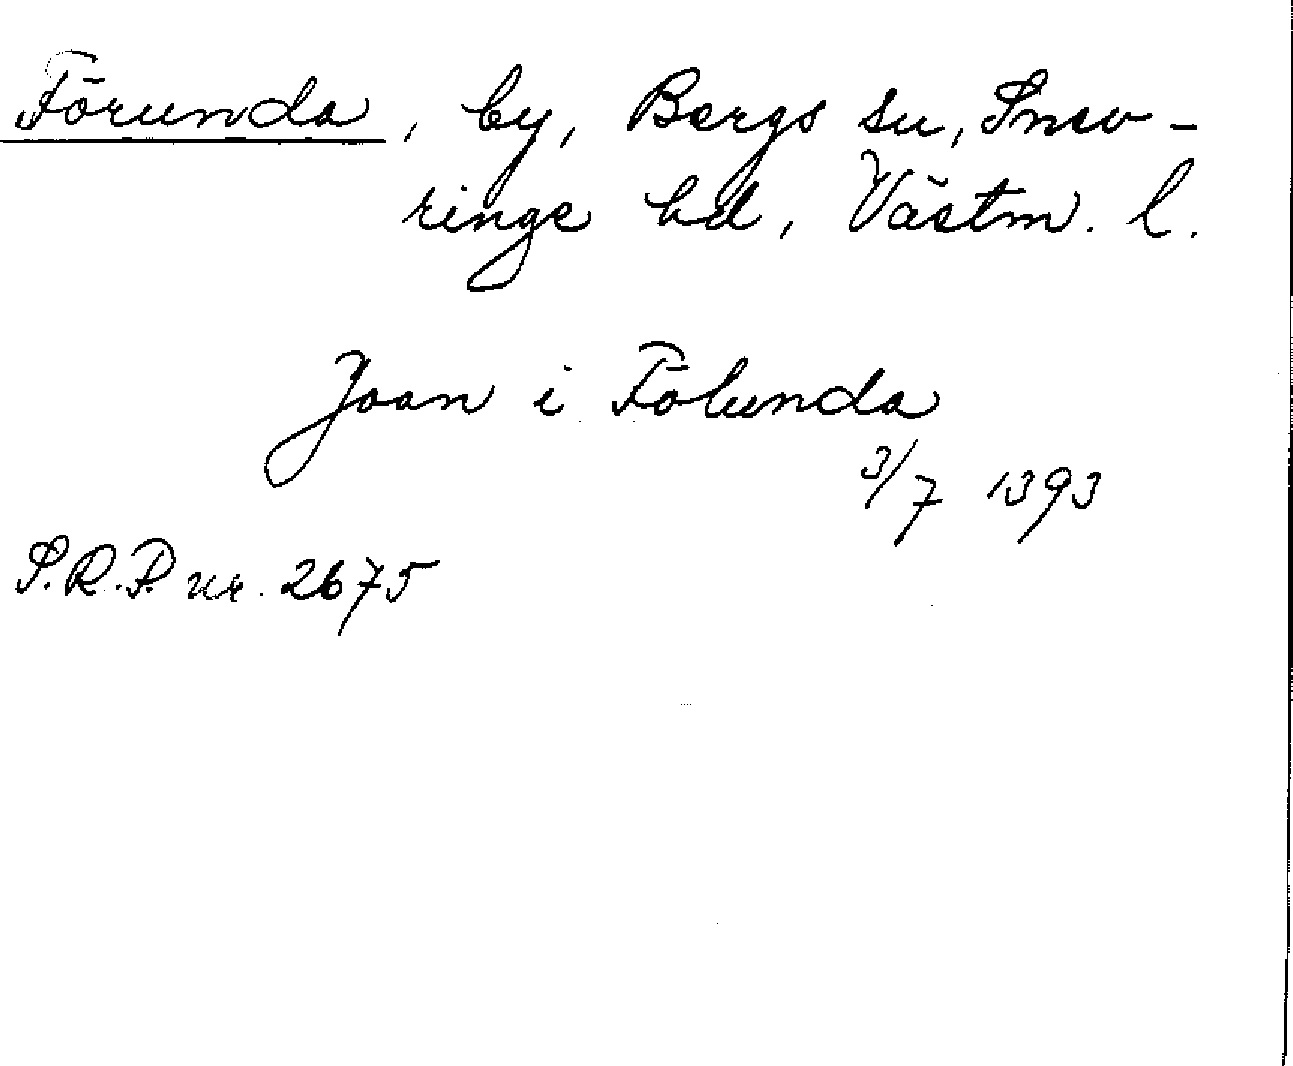 Förunda, by, Bergs sn, Snev-
ringe hd, Västm. l.
Joan i Fölunda
3/7 1393
S.R.P. nr. 2675